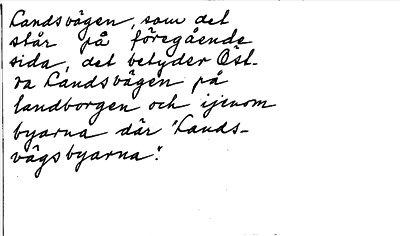 Landsvägen, som det
står på föregående
sida, det betyder Öst-
ra Landsvägen på
landborgen och ijenom
byarna där "Lands-
vägsbyarna".